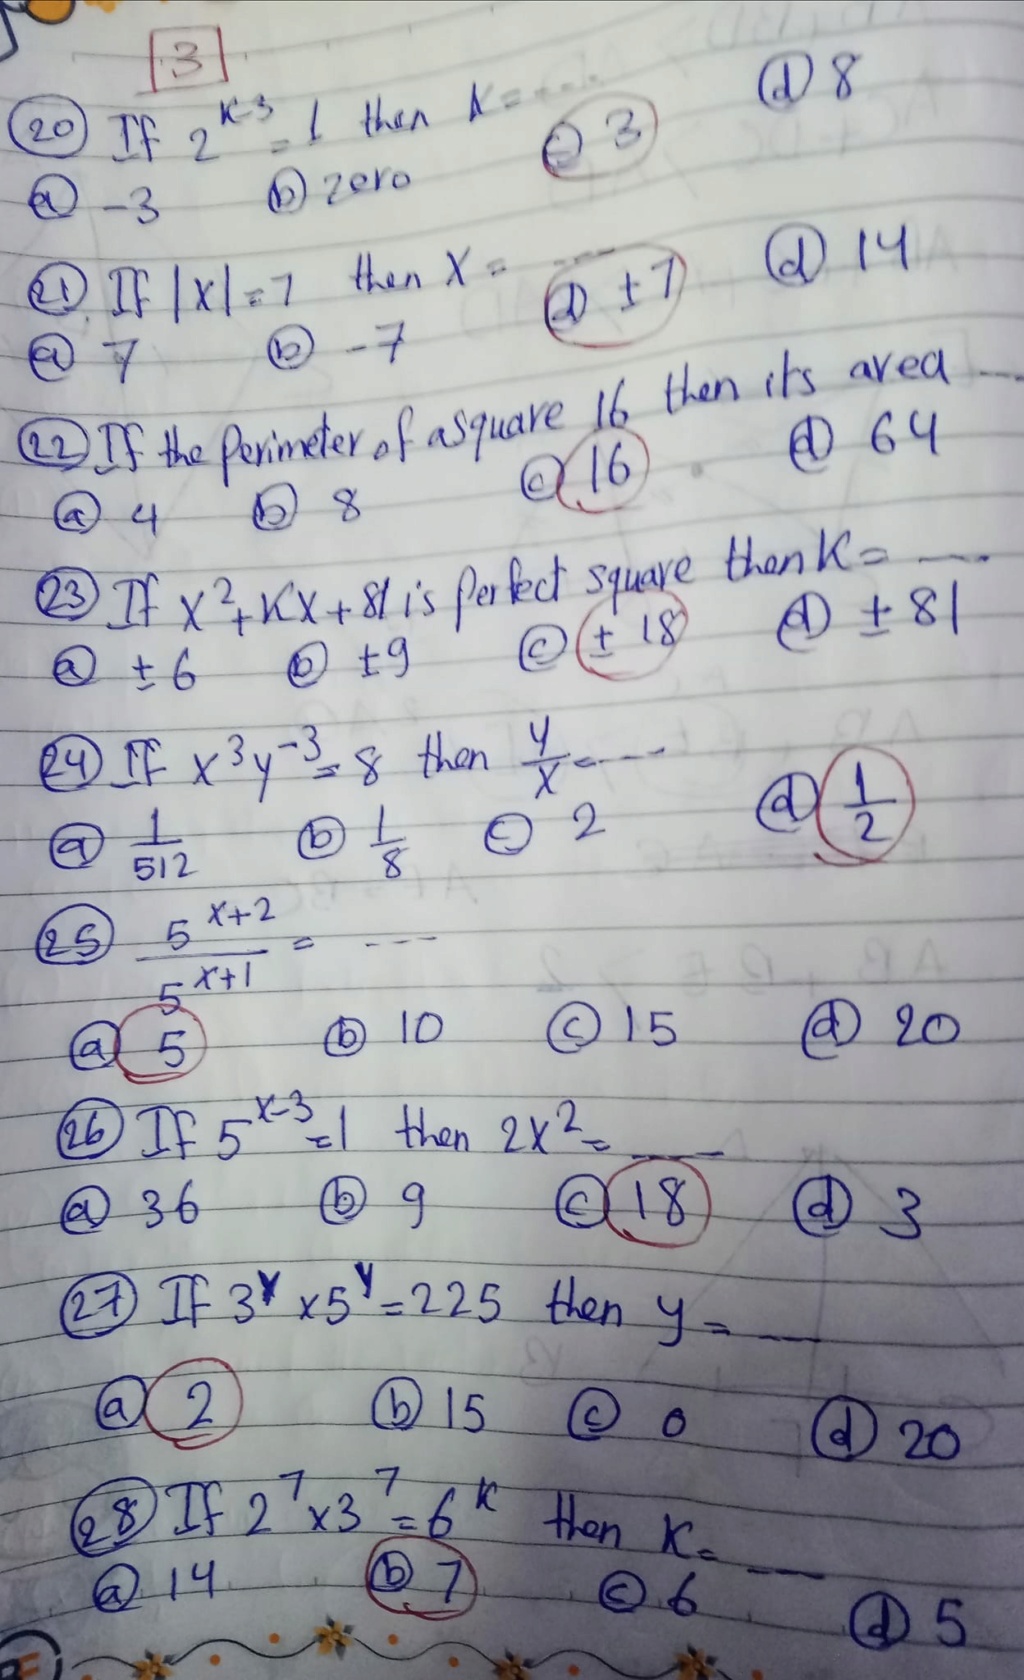 3
20 If 2^{K-3} = 1 then K = ....
a -3 b zero c 3 d 8
21 If |X| = 7 then X = ----
a 7 b -7 d ±7 d 14
22 If the Perimeter of a square 16 then its area ----
a 4 b 8 c 16 d 64
23 If X² + KX + 81 is perfect square then K = ----
a ±6 b ±9 c ±18 d ±81
24 If X³y⁻³ = 8 then y/X = ----
a 1/512 b 1/8 c 2 d 1/2
25 5^{X+2} / 5^{X+1} = ----
a 5 b 10 c 15 d 20
26 If 5^{X-3} = 1 then 2X² = ----
a 36 b 9 c 18 d 3
27 If 3^y × 5^y = 225 then y = ----
a 2 b 15 c 0 d 20
28 If 2⁷ × 3⁷ = 6^K then K = ----
a 14 b 7 c 6 d 5